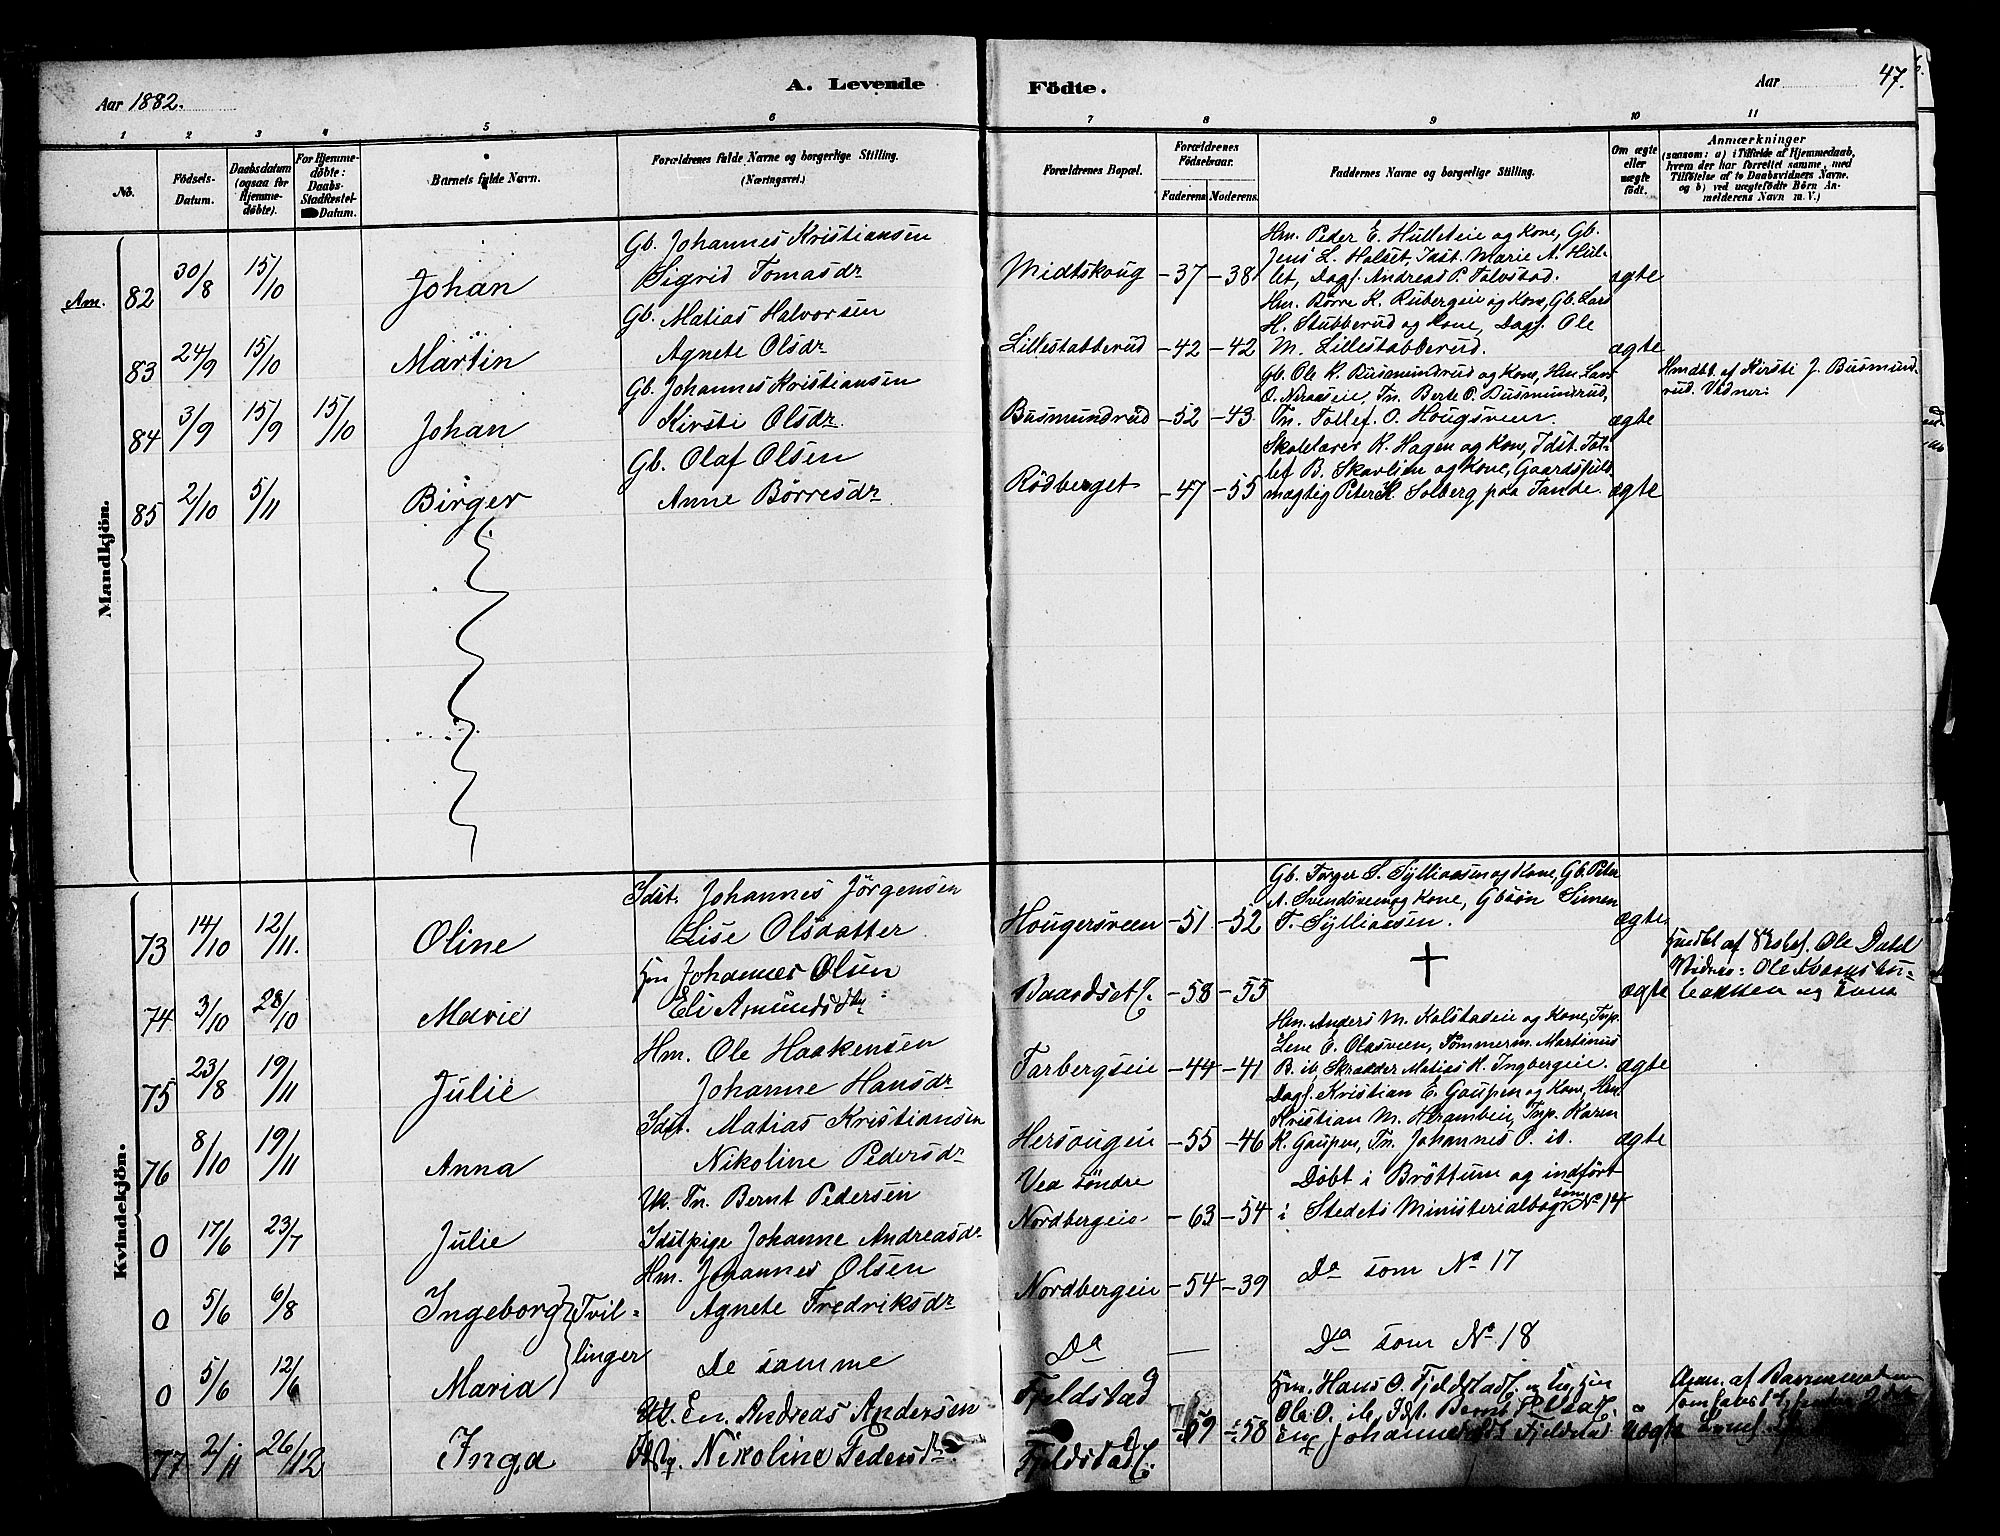 Aar 1882.
A. Levende
Födte.
Aar
47.
1 2 3 4 5 6 7 8 9 10 11
No.
Födsels-Datum.
Daabsdatum (ogsaa for Hjemme-döbte).
For Hjemme-döbte: Daabs-Stadfæstel- Datum.
Barnets fulde Navn.
Forældrenes fulde Navne og borgerlige Stilling. (Næringsvei.)
Forældrenes Bopæl.
Forældrenes Födselsaar.
Faderens Moderens
Faddernes Navne og borgerlige Stilling.
Om ægte eller uægte födt.
Anmærkninger
(saasom: a) i Tilfælde af Hjemmedaab, hvem der har forrettet samme, med Tilföielse af to Daabsvidners Navne. og b) ved uægtefödte Börn Anmelderens Navn m. V.)
Mandkjön.
Am. 82 30/8 15/10 Johan
Gb. Johannes Kristiansen
Sigrid Tomasdr
Midtskoug -37 -38
Hm. Peder E. Hulleteie og Kone, Gb.
Jens L. Halset, Idst. Marie A. Hul-
let, Dagf. Andreas P. Tolvstad.
ægte
83 24/9 15/10 Martin
Gb. Matias Halvorsen
Agnete Olsdr
Lillestabberud -42 -42
Hm. Börre K. Rubergeie og Kone, Gb. Lars
H. Stubberud og Kone, Dagf. Ole
M. Lillestabberud.
ægte
84 3/9 15/9 15/10 Johan
Gb. Johannes Kristiansen
Kirsti Olsdr.
Busmundrud -52 -43
Gb. Ole K. Busmundrud og Kone, Hm. Lars
O. Neraaseie, Tn. Berte O. Busmundrud,
Tn. Tollef O. Hougsveen.
ægte
Hmdbt. af Kirsti J. Busmund-
rud. Vidner:
85 2/10 5/11 Birger
Gb. Olaf Olsen
Anne Börresdr
Rödberget -47 -55
Skolelærer K. Hagen og Kone, Idst. Tol-
lef B. Skarlien og Kone, Gaardsfuld-
mægtig Peter K. Solberg paa Tande.
ægte
Kvindekjön.
73 14/10 12/11. Oline
Idst. Johannes Jörgensen
Lise Olsdatter
Hougersveen -51 -52
Gb. Torger S. Sylliaasen og Kone, Gb. Peter
A. Svendsveen og Kone, Gbsön Simen
T. Sylliaasen.
ægte
74 3/10 28/10 Marie
Hm Johannes Olsen
Eli Amundsdtr
Baardset -58 -55
+
ægte
Hmdbt af Ole Dahl
Vidner: Ole
og Kone
75 23/8 19/11 Julie
Hm. Ole Haakensen
Johanne Hansdr
Farbergseie -44 -41
Hm. Anders M. Kolstadeie og Kone, Tnp.
Lene E. Olasveen, Tömmerm. Martinus
B. ib. Skrædder Matias K. Ingbergeie.
ægte
76 8/10 19/11 Anna
Idst. Matias Kristiansen
Nikoline Pedersdr
Hersougeie -55 -46
Dagf. Kristian E. Gaupen og Kone, Hm.
Kristian M. Hrambeie, Tnp. Karen
K. Gaupen, Tn. Johannes P. ib.
ægte
0 17/6 23/7 Julie
Uk. Tn. Bernt Pedersen
Idstpige Johanne Andreasdr
Vea söndre
Nordbergeie -63 -54
Döbt i Bröttum og indfört
i Stedets Ministerialbog som No 14
0 5/6 6/8 Ingeborg } Tvil-
Hm. Johannes Olsen
Agnete Fredriksdr
Nordbergeie -54 -39
Do som No 17
0 5/6 12/6 Maria } linger
De samme
Do —
Do som No 18
77 2/11 26/12 Inga
Uk. En. Andreas Andersen
Nikoline Pedersdtr
Fjeldstad
Fjeldstad 59 58
Hm. Hans O. Fjeldstad
Ole O. ib. Idst. Bernt
Johanne Fjeldstad
Uægte
Anm. af Barnemoderen